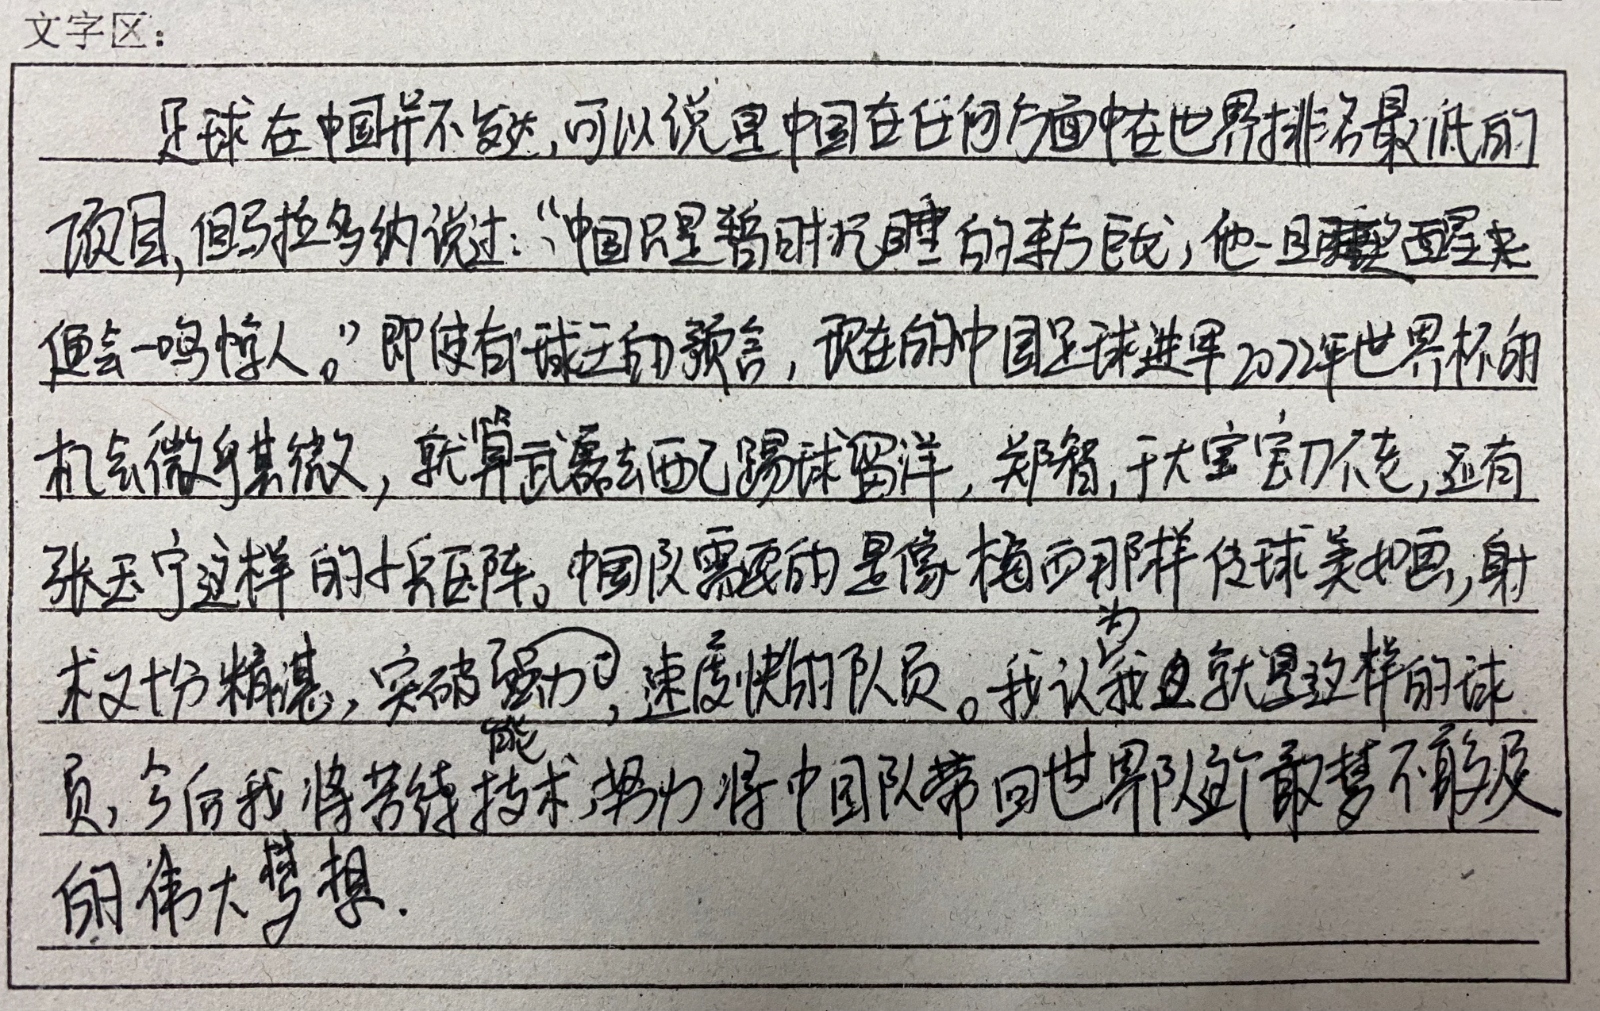 文字区：
足球在中国并不发达,可以说是中国在任何方面中在世界排名最低的
项目,但马拉多纳说过:“中国只是暂时沉睡的东方巨龙,他一旦醒来
便会一鸣惊人。”即使有球王的预言,现在的中国足球进军2022年世界杯的
机会微乎其微,就算武磊去西乙踢球留洋,郑智,于大宝宝刀不老,还有
张玉宁这样的小兵压阵。中国队需要的是像梅西那样传球美如画,射
术又十分精湛,突破能力强,速度快的队员。我认为我就是这样的球
员,今后我将苦练技术,努力将中国队带回世界队这个敢梦不敢及
的伟大梦想.